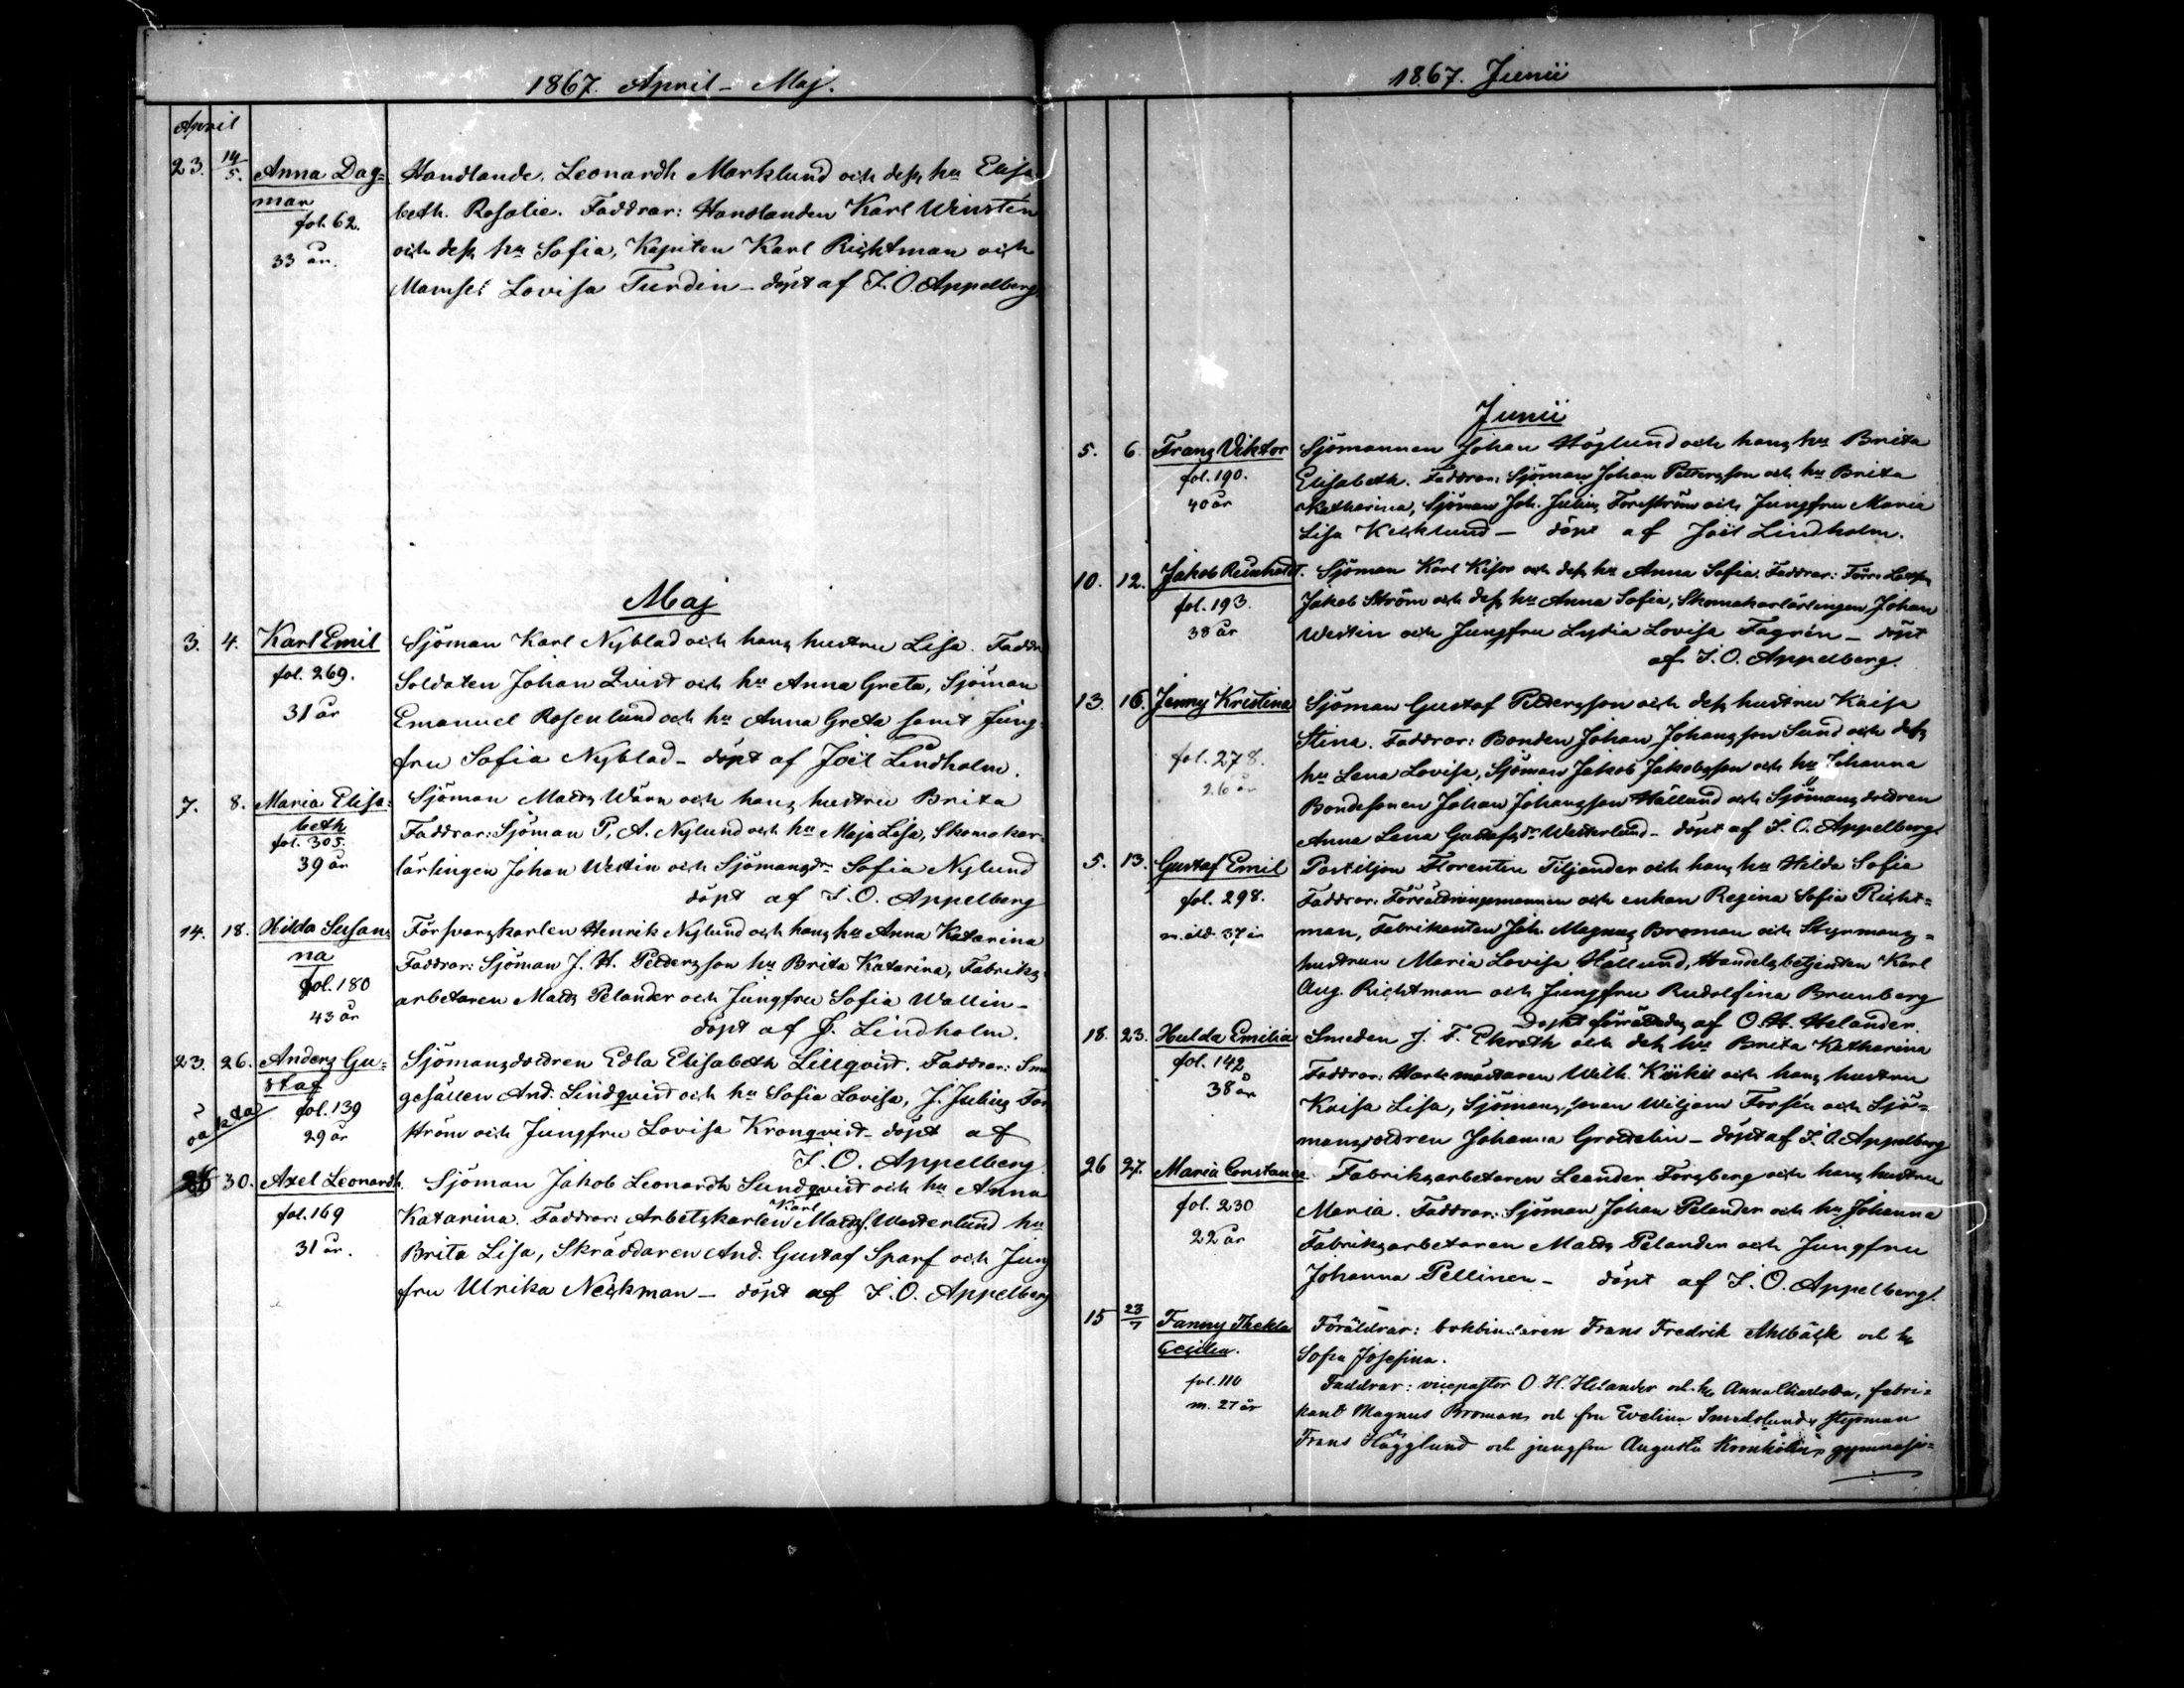 1867. April - Maj.
April
23. 14/5. Anna Dag= Handlande. Leonardh Marklund och deſs hu Elisa
mar beth. Rosalie. Faddrar: Handlanden Karl Winstén
fol. 62. och deſs hu Sofia, Kapiten Karl Richtman och
33 år. Mamsel Lovisa Turdin - döpt af I. O. Appelberg.
Maj
3. 4. Karl Emil Sjöman Karl Nyblad och hans hustru Lisa. Faddr
fol. 269. Soldaten Johan Qvist och hu Anna Greta, Sjöman
31 år Emanuel Rosenlund och hu Anna Greta samt Jung-
fru Sofia Nyblad - döpt af Joël Lindholm.
7. 8. Maria Elisa= Sjöman Matts Wärn och hans hustru Brita
beth Faddrar: Sjöman P. A. Nylund och hu Maja Lisa, Skomakar-
fol. 305. lärlingen Johan Westin och Sjömansdr Sofia Nylund
39 år döpt af I. O. Appelberg
14. 18. Hilda Susan= Försvarskarlen Henrik Nylund och hans hu Anna Katarina
na Faddrar: Sjöman J. H. Pettersson hu Brita Katarina, Fabriks-
fol. 180 arbetaren Matts Pelander och Jungfru Sofia Wallin -
43 år döpt af J. Lindholm.
23. 26. Anders Gu= Sjömansdoldren Edla Elisabeth Lillqvist. Faddrar: Sme
staf gesällen And. Lindqvist och hu Sofia Lovisa, J. Julius For
oäkta fol. 139 ström och Jungfru Lovisa Kronqvist - döpt af
29 år I. O. Appelberg.
30. Axel Leonardh. Sjöman Jakob Leonardh Sundqvist och hu Anna
Karl
fol. 169 Katarina. Faddrar: Arbetskarlen Matts. Westerlund hu
31 år. Brita Lisa, Skräddaren And. Gustaf Sparf och Jung
fru Ulrika Neckman - döpt af I. O. Appelberg
1867. Junii
Junii
5. 6. Frans Viktor Sjömannen Johan Höglund och hans hu Brita
fol. 190. Elisabeth. Faddrar: Sjöman Johan Pettersson och hu Brita
40 år Katharina, Sjöman Joh. Julius Forsström och Jungfru Maria
Lisa Kecklund - döpt af Joël Lindholm.
10. 12. Jakob Reinholdt. Sjöman Karl Kisor och deſs hu Anna Sofia. Faddrar: Förre
fol. 193. Jakob Ström och deſs hu Anna Sofia, Skomakarlärlingen Johan
38 år Westin och Jungfru Lydia Lovisa Fagrén - döpt
af I. O. Appelberg.
13. 16. Jenny Kristina Sjöman Gustaf Pettersson och deſs hustru Kaisa
Stina. Faddrar: Bonden Johan Johansson Sund och deſs
fol. 278. hu Lena Lovisa, Sjöman Jakob Jakobsson och hu Johanna
26 år Bondesonen Johan Johansson Hällund och Sjömansdoldren
Anna Lena Gustafsdr Westerlund - döpt af I. O. Appelberg.
5. 13. Gustaf Emil Postiljon Florentin Tiljander och hans hu Hilda Sofia
fol. 298. Faddrar: Förrådninsmannen och enkan Regina Sofia Richt=
m. ald. 37 år man, Fabrikanten Joh. Magnus Broman och Styrmans=
hustrun Maria Lovisa Hällund, Handelsbetjenten Karl
Aug. Richtman och Jungfru Rudolfina Brunberg
Dopet förrättades af O. H. Helander.
18. 23. Hulda Emilia Smeden J. F. Ekroth och deſs hu Brita Katharina
fol. 142 Faddrar: Markmästaren Wilh. Kiikil och hans hustru
38 år Kaisa Lisa, Sjömans, sonen Wiljam Forsén och Sjö=
mansdoldren Johanna Grottelin - döpt af I. O. Appelberg
26 27. Maria Constance. Fabriksarbetaren Leander Forsberg och hans hustru
fol. 230 Maria. Faddrar: Sjöman Johan Pelander och hu Johanna
22 år Fabriksarbetaren Matts Pelander och Jungfru
Johanna Pellinen - döpt af I. O. Appelberg.
15 23/7 Fanny Thekla Föräldrar: bokbindaren Frans Fredrik Ahlbäck och h.
Cecilia. Sofia Josefina.
fol. 110 Faddrar: vicepastor O. H. Helander och h. Anna Charlotta, fabri=
m. 27 år kant Magnus Broman och fru Evelina Smedslund, styrman
Frans Hägglund och jungfru Augusta gymnasi=